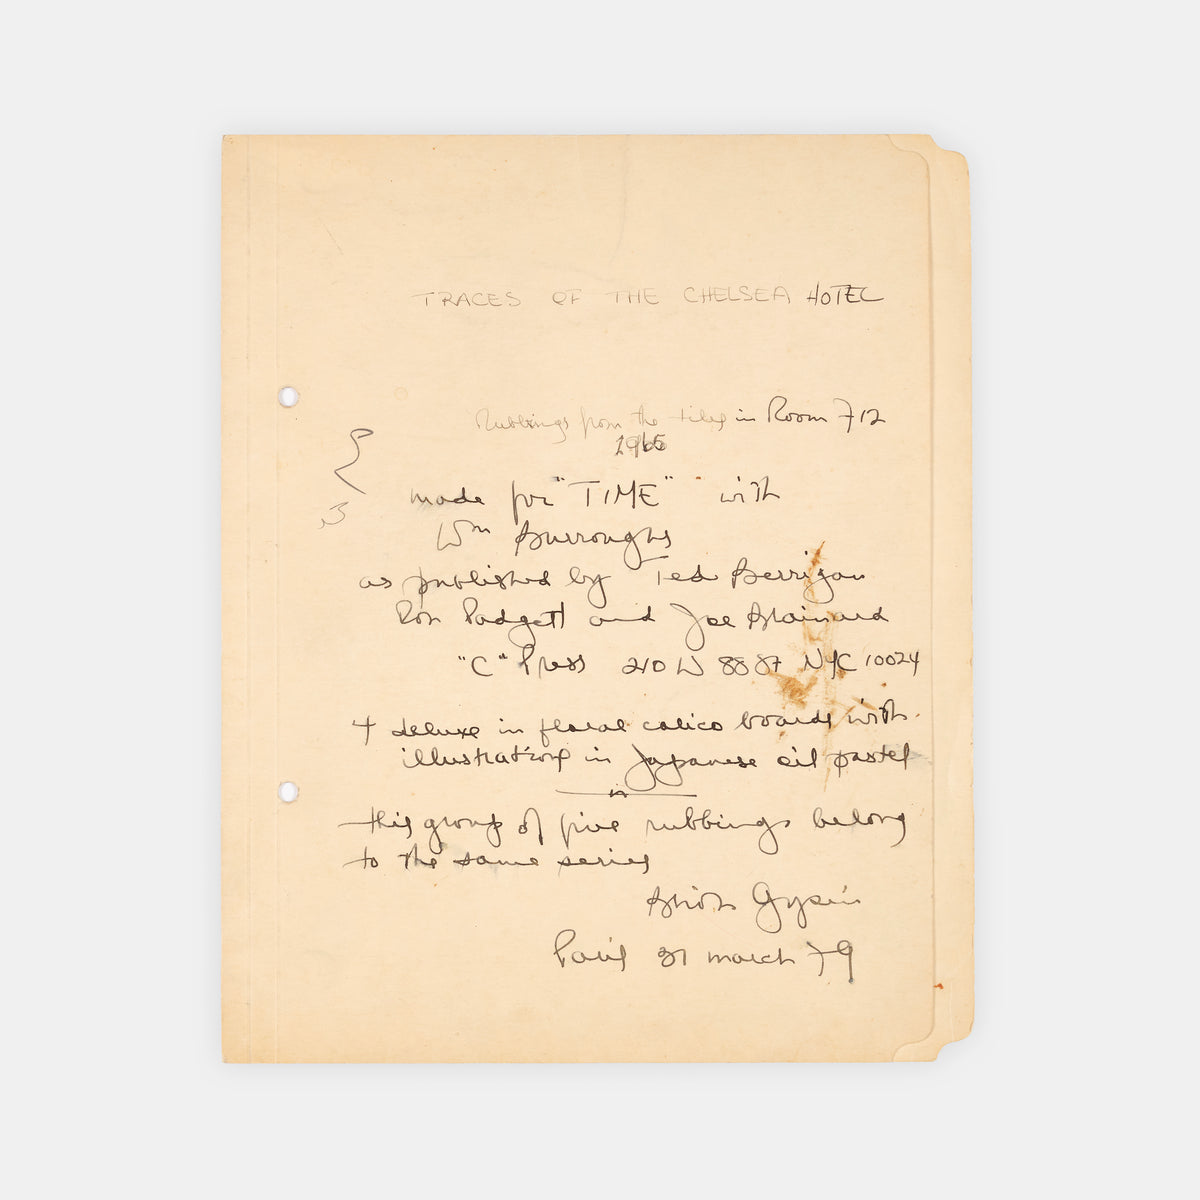 TRACES OF THE CHELSEA HOTEL
Rubbings from the tiles in Room 712
1965
made for "TIME" with
Wm Burroughs
as published by Ted Berrigan
Ron Padgett and Joe Brainard
"C" Press 210 W 88 NYC 10024
deluxe in floral calico boards with
illustrations in Japanese oil pastel
this group of five rubbings belong
to the same series
Brion Gysin
Paris 31 march 79